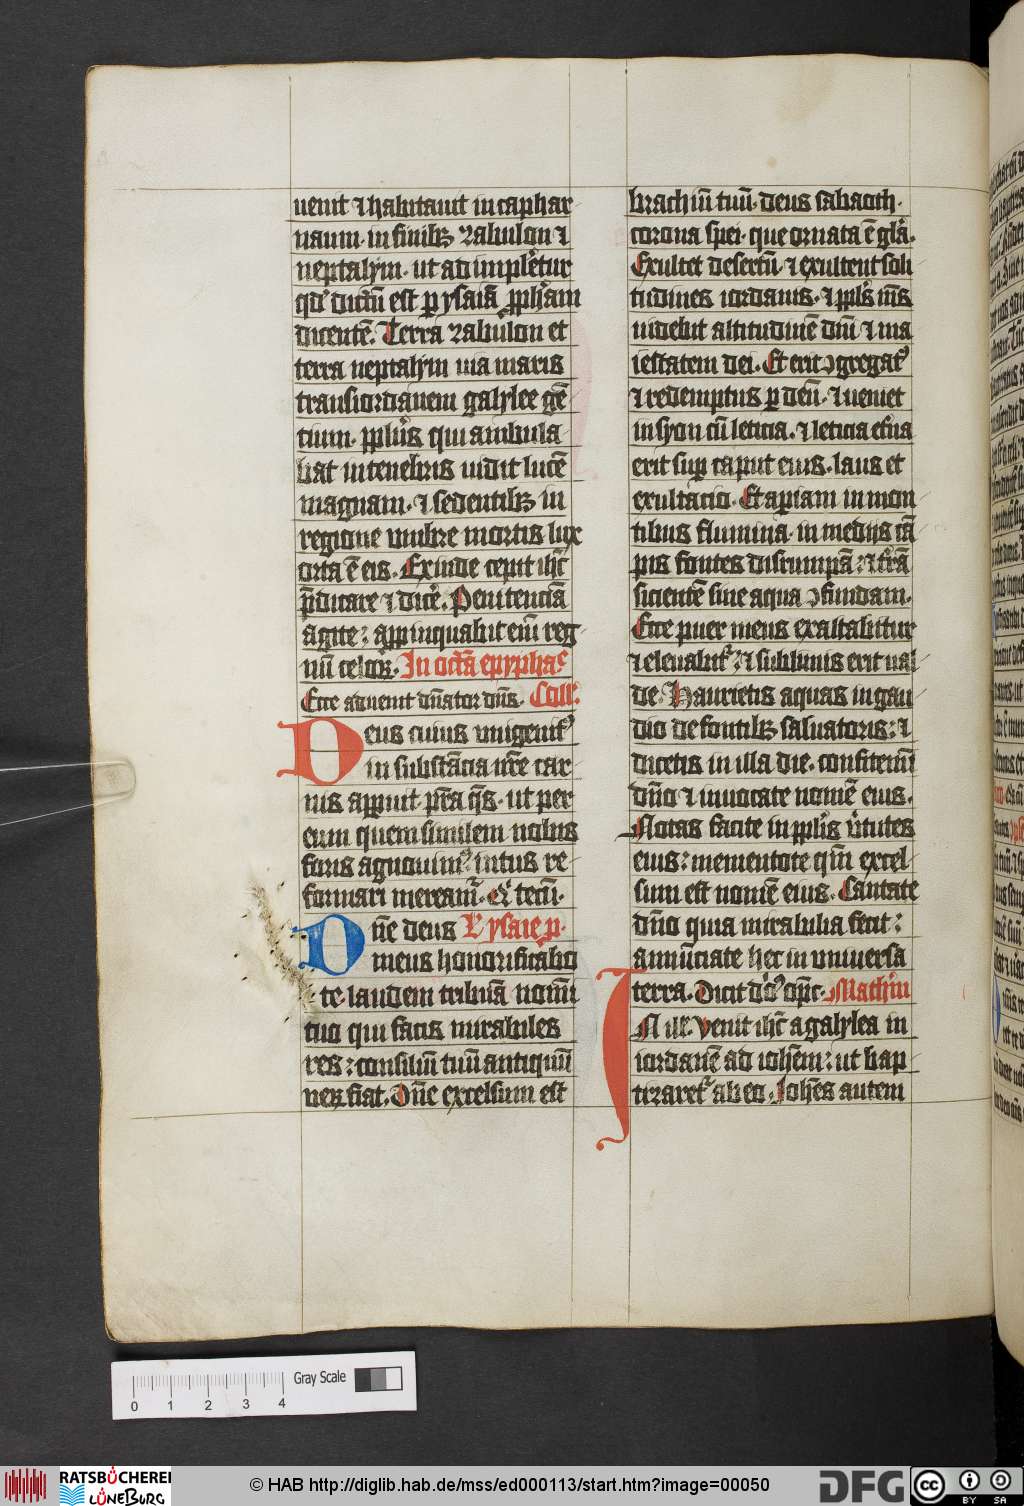 uenit ⁊ habitauit in caphar
naum · in finibꝫ zabulon ⁊
neptalym · ut adimpleret᷑
qd' dictū est ꝑ ysaiā ꝓph'am
dicentē. Terra zabulon et
terra neptalym uia maris
transiordanem galylee gē
tium · ppl'us qui ambula
bat in tenebris uidit lucē
magnam · ⁊ sedentibꝫ in
regione umbre mortis lux
orta ē eis. Exinde cepit ih̄c
p̄dicare ⁊ dicē. Penitenciā
agite : appinquabit eni᷑ reg
nū celoꝝ. In octā epyphae
Ecce aduenit dn̄ator dn̄s. Coll᷑.
Deus cuius unigenit᷒
in substācia nr̄e car
nis apparuit p̄sta q̄s · ut per
eum quem similem nobis
foris agnouim᷒ intus re
formari meream᷑. Qi tecū.
Dn̄e deus L' ysaie p.
meus honorificabo
te · laudem tribuā nomīi
tuo qui facis mirabiles
res : consiliū tuū antiquū
ueꝝ fiat. Dn̄e excelsum est
brachiū tuū · deus sabaoth ·
corona spei · que ornata ē gl'a.
Exultet desertū · ⁊ exultent soli
tudines iordanis · ⁊ ppl's m̄s
uidebit altitudinē dn̄i ⁊ ma
iestatem dei. Et erit ꝯgregat᷒
⁊ redemptus ꝑ deū · ⁊ ueniet
in syon cū leticia · ⁊ leticia et̄na
erit suꝑ caput eius · laus et
exultacio. Et apiam in mon
tibus flumina · in medijs cā
pis fontes disrumpā : ⁊ t'rā
sicientē sine aqua ꝯfundam.
Ecce puer meus exaltabitur
⁊ eleuabit᷑ : ⁊ sublimis erit ual
de. Haurietis aquas in gau
dio de fontibꝫ saluatoris : ⁊
dicetis in illa die · confitemī
dn̄o ⁊ inuocate nomē eius.
Notas facite in ppl'is u'tutes
eius : mementote qm̄ excel
sum est nomē eius. Cantate
dn̄o quia mirabilia fecit :
annūciate hec in uniuersa
terra. Dicit d'o᷒ op̄c. Mathiū
In ill'. Venit ih̄c a galylea in
iordanē ad ioh̄em : ut bap
tizaret᷑ ab eo. Joh̄es autem
0 1 2 3 4
Gray Scale
RATSBÜCHEREI
LÜNEBURG
© HAB http://diglib.hab.de/mss/ed000113/start.htm?image=00050
DFG
cc
BY SA